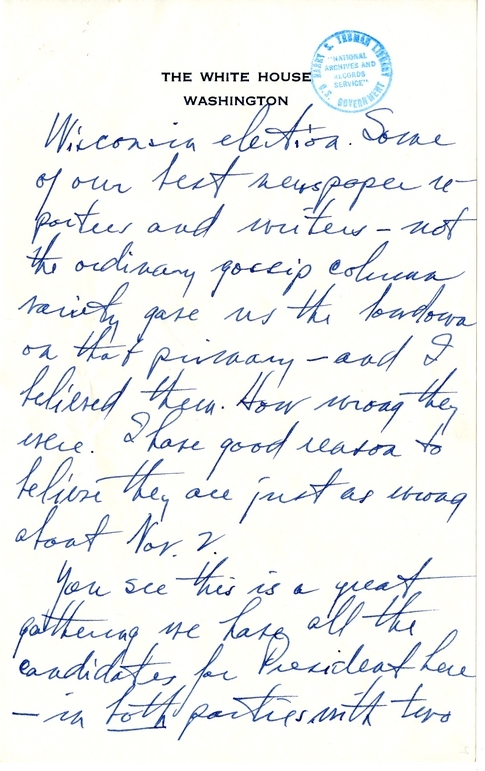 THE WHITE HOUSE
WASHINGTON
HARRY S. TRUMAN LIBRARY
"NATIONAL
ARCHIVES AND
RECORDS
SERVICE"
U.S. GOVERNMENT
Wisconsin election. Some
of our best newspaper re-
porters and writers - not
the ordinary gossip column
variety gave us the lowdown
on that primary - and I
believed them. How wrong they
were. I have good reason to
believe they are just as wrong
about Nov. 2.
You see this is a great
gathering we have all the
candidates for President here
- in both parties with two